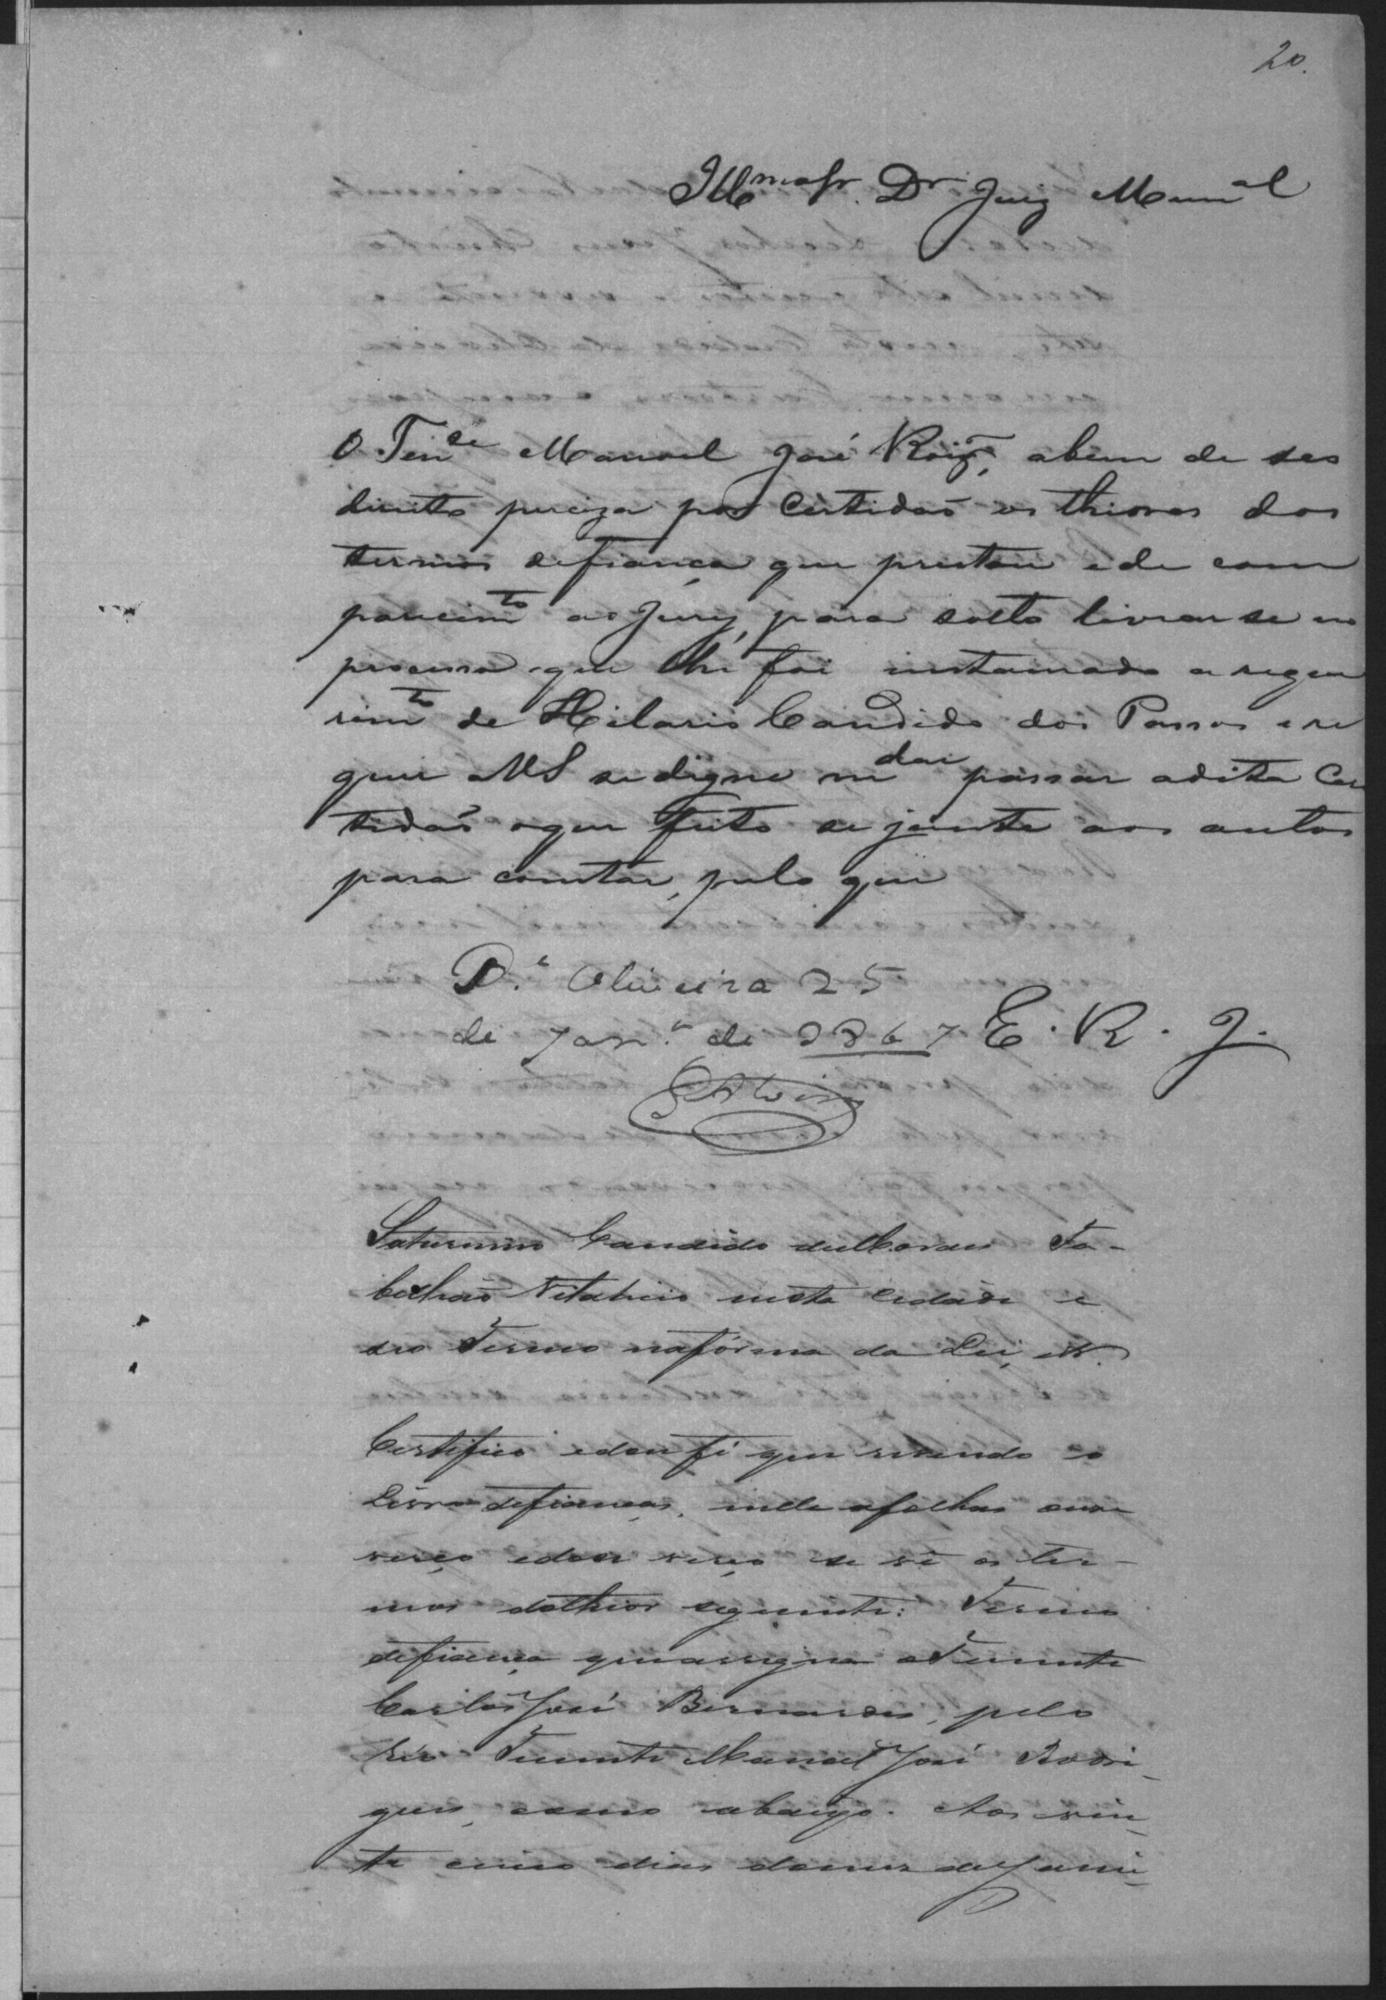 20.
Illmo Sr. Dr. Juiz Munal
O Tene Manoel José Roiz, abem de seo
direito preciza por Certidaõ os theores dos
termos defiança que prestou e de com
parecimto ao Jury, para solto livrar se no
processo que lhe foi instaurado a reque
rimto de Hilario Candido dos Passos e re
quer a V S se digne mdar passar a dita Cer
tidaõ e que feito se junte aos autos
para constar, pelo que
P.e Oliveira 25
de Janr.o de 1867 E. R. J.
Saturnino Candido de Moraes Ta-
belliaõ Vitalicio nesta Cidade e
seo Termo na fórma da Lei, etc.
Certifico e dou fé que revendo o
Livro defianças, nelle a folhas
verço e dou verço se vê os ter-
mos do theor seguinte: Termo
defiança que assigna o Tenente
Carlos José Bernardes, pelo
Reo Tenente Manoel José Rodri-
gues, como abaixo. Aos vin-
te cinco dias do mez de Janei-